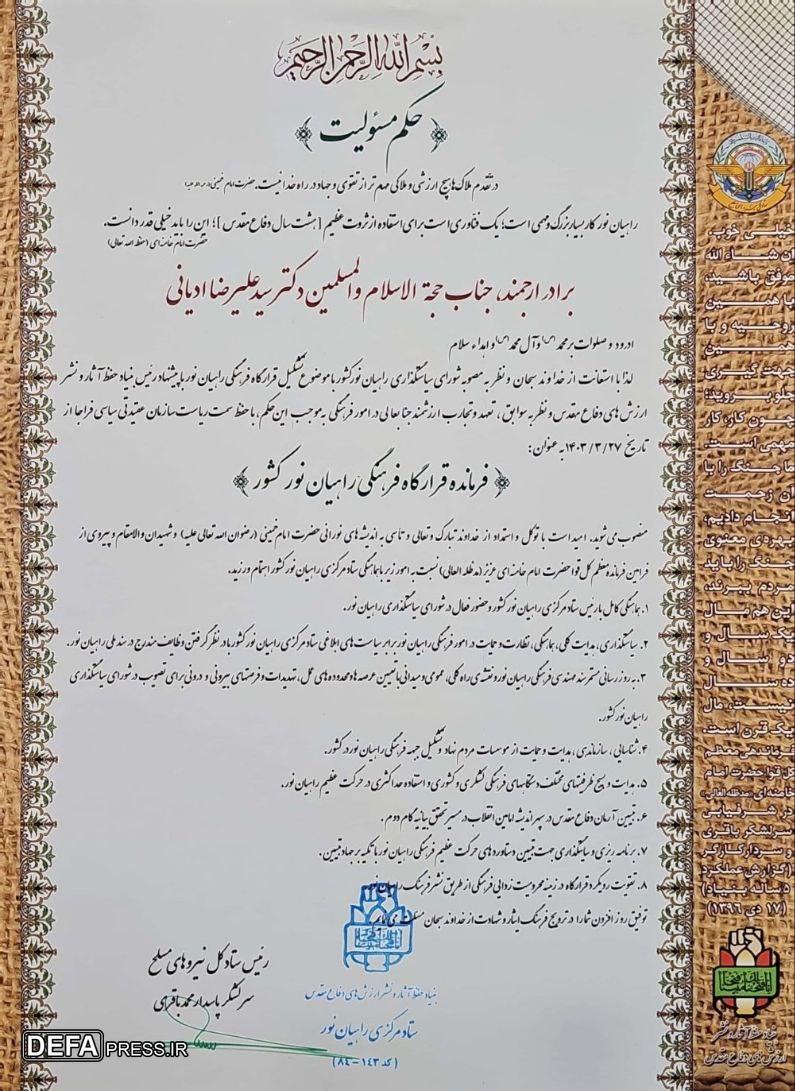 بسم الله الرحمن الرحیم
حکم مسئولیت
در تقدم ملاک‌ها هیچ ارزشی و ملاکی مهم تر از تقوی و جهاد در راه خدا نیست. حضرت امام خمینی
راهیان نور کار بسیار بزرگ و مهمی است؛ یک فناوری است برای استفاده از ثروت عظیم [هشت سال دفاع مقدس]؛ این را باید خیلی قدر دانست.
حضرت امام خامنه ای (حفظ الله تعالی)
برادر ارجمند، جناب حجة الاسلام والمسلمین دکتر سید علیرضا ادیانی
با درود و صلوات بر محمد (ص) و آل محمد (ص) و اهداء سلام
لذا با استعانت از خداوند سبحان و نظر به مصوبه شورای سیاستگذاری راهیان نور کشور با موضوع تشکیل قرارگاه فرهنگی راهیان نور با پیشنهاد رئیس بنیاد حفظ آثار و نشر
ارزش های دفاع مقدس و نظر به سوابق، تعهد و تجارب ارزشمند جنابعالی در امور فرهنگی به موجب این حکم، با حفظ سمت ریاست سازمان عقیدتی سیاسی فراجا از
تاریخ ۱۴۰۳/۳/۲۷ به عنوان:
فرمانده قرارگاه فرهنگی راهیان نور کشور
منصوب می شوید. امید است با توکل و استمداد از خداوند تبارک و تعالی و تاسی به اندیشه های نورانی حضرت امام خمینی (رضوان الله تعالی علیه) و شهیدان والامقام و پیروی از
فرامین فرمانده معظم کل قوا حضرت امام خامنه ای عزیز (مد ظله العالی) نسبت به امور زیر با هماهنگی ستاد مرکزی راهیان نور کشور اهتمام ورزید.
۱. هماهنگی کامل با رئیس ستاد مرکزی راهیان نور کشور و حضور فعال در شورای سیاستگذاری راهیان نور.
۲. سیاستگذاری، هدایت کلی، هماهنگی، نظارت و حمایت در امور فرهنگی راهیان نور برابر سیاست های ابلاغی ستاد مرکزی راهیان نور کشور با در نظر گرفتن وظایف مندرج در سند ملی راهیان نور.
۳. به روز رسانی مستمر سند مهندسی فرهنگی راهیان نور و نقشه ی راه کلی، عمومی و میدانی با تعیین عرصه ها و محدوده های عمل، تهدیدات و فرصتهای بیرونی و درونی برای تصویب در شورای سیاستگذاری
راهیان نور کشور.
۴. شناسایی، سازماندهی، هدایت و حمایت از موسسات مردم نهاد و تشکیل جبهه فرهنگی راهیان نور در کشور.
۵. هدایت و بسیج ظرفیتهای مختلف دستگاههای فرهنگی لشکری و کشوری و استفاده حداکثری در حرکت عظیم راهیان نور.
۶. تبیین آرمان دفاع مقدس در سپهر اندیشه امامین انقلاب در مسیر تحقق بیانیه گام دوم.
۷. برنامه ریزی و سیاستگذاری جهت تبیین دستاوردهای حرکت عظیم فرهنگی راهیان نور با تکیه بر جهاد تبیین.
۸. تقویت رویکرد قرارگاه در زمینه محرومیت زدایی فرهنگی از طریق نشر فرهنگ راهیان نور.
توفیق روز افزون شما را در ترویج فرهنگ ایثار و شهادت از خداوند سبحان مسئلت می نمایم.
رئیس ستاد کل نیروهای مسلح
سرلشکر پاسدار محمد باقری
بنیاد حفظ آثار و نشر ارزش های دفاع مقدس
ستاد مرکزی راهیان نور
(کد ۱۴۳-۸۴)
خیلی خوب،
ان شاء الله
موفق باشید؛
با همین
روحیه و با
همین
جهت گیری
جلو بروید؛
چون کار، کار
مهمی است.
ما جنگ را با
آن زحمت
انجام دادیم،
بهره ی معنوی
جنگ را باید
مردم ببرند،
این هم مال
یک سال و
دو سال و
ده سال
نیست، مال
یک قرن است.
فرماندهی معظم
کل قوا حضرت امام
خامنه ای «مدظله العالی»
در شرفیابی
سرلشکر باقری
و سردار کارگر
(گزارش عملکرد
۵ ساله بنیاد)
(۱۷ دی ۱۳۹۶)
بنیاد حفظ آثار و نشر
ارزش های دفاع مقدس
DEFA PRESS.IR